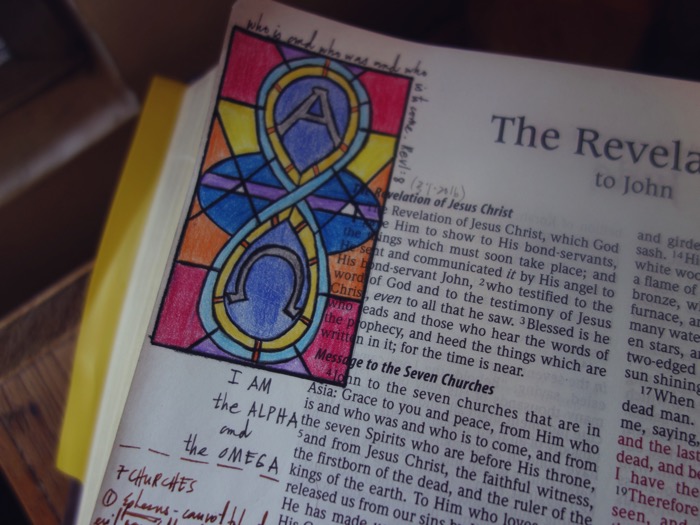 who is and who was and who
is to come Rev 1:8
(3-7-2016)
A
Ω
I AM
the ALPHA
and
the OMEGA
7 CHURCHES
The Revela
to John
Revelation of Jesus Christ
Revelation of Jesus Christ, which God
Him to show to His bond-servants,
things which must soon take place; and
He sent and communicated it by His angel to
His bond-servant John, 2who testified to the
word of God and to the testimony of Jesus
Christ, even to all that he saw. 3Blessed is he
who reads and those who hear the words of
the prophecy, and heed the things which are
written in it; for the time is near.
Message to the Seven Churches
4John to the seven churches that are in
Asia: Grace to you and peace, from Him who
is and who was and who is to come, and from
the seven Spirits who are before His throne,
5and from Jesus Christ, the faithful witness,
the firstborn of the dead, and the ruler of the
kings of the earth. To Him who loves
released us from our sins by
He has made
and girde
sash. 14Hi
white woo
a flame of
bronze, w
furnace, a
many wate
en stars, a
two-edged
sun shining
17When
dead man.
me, saying,
and the last
dead, and be
I have the
19Therefore
seen, and